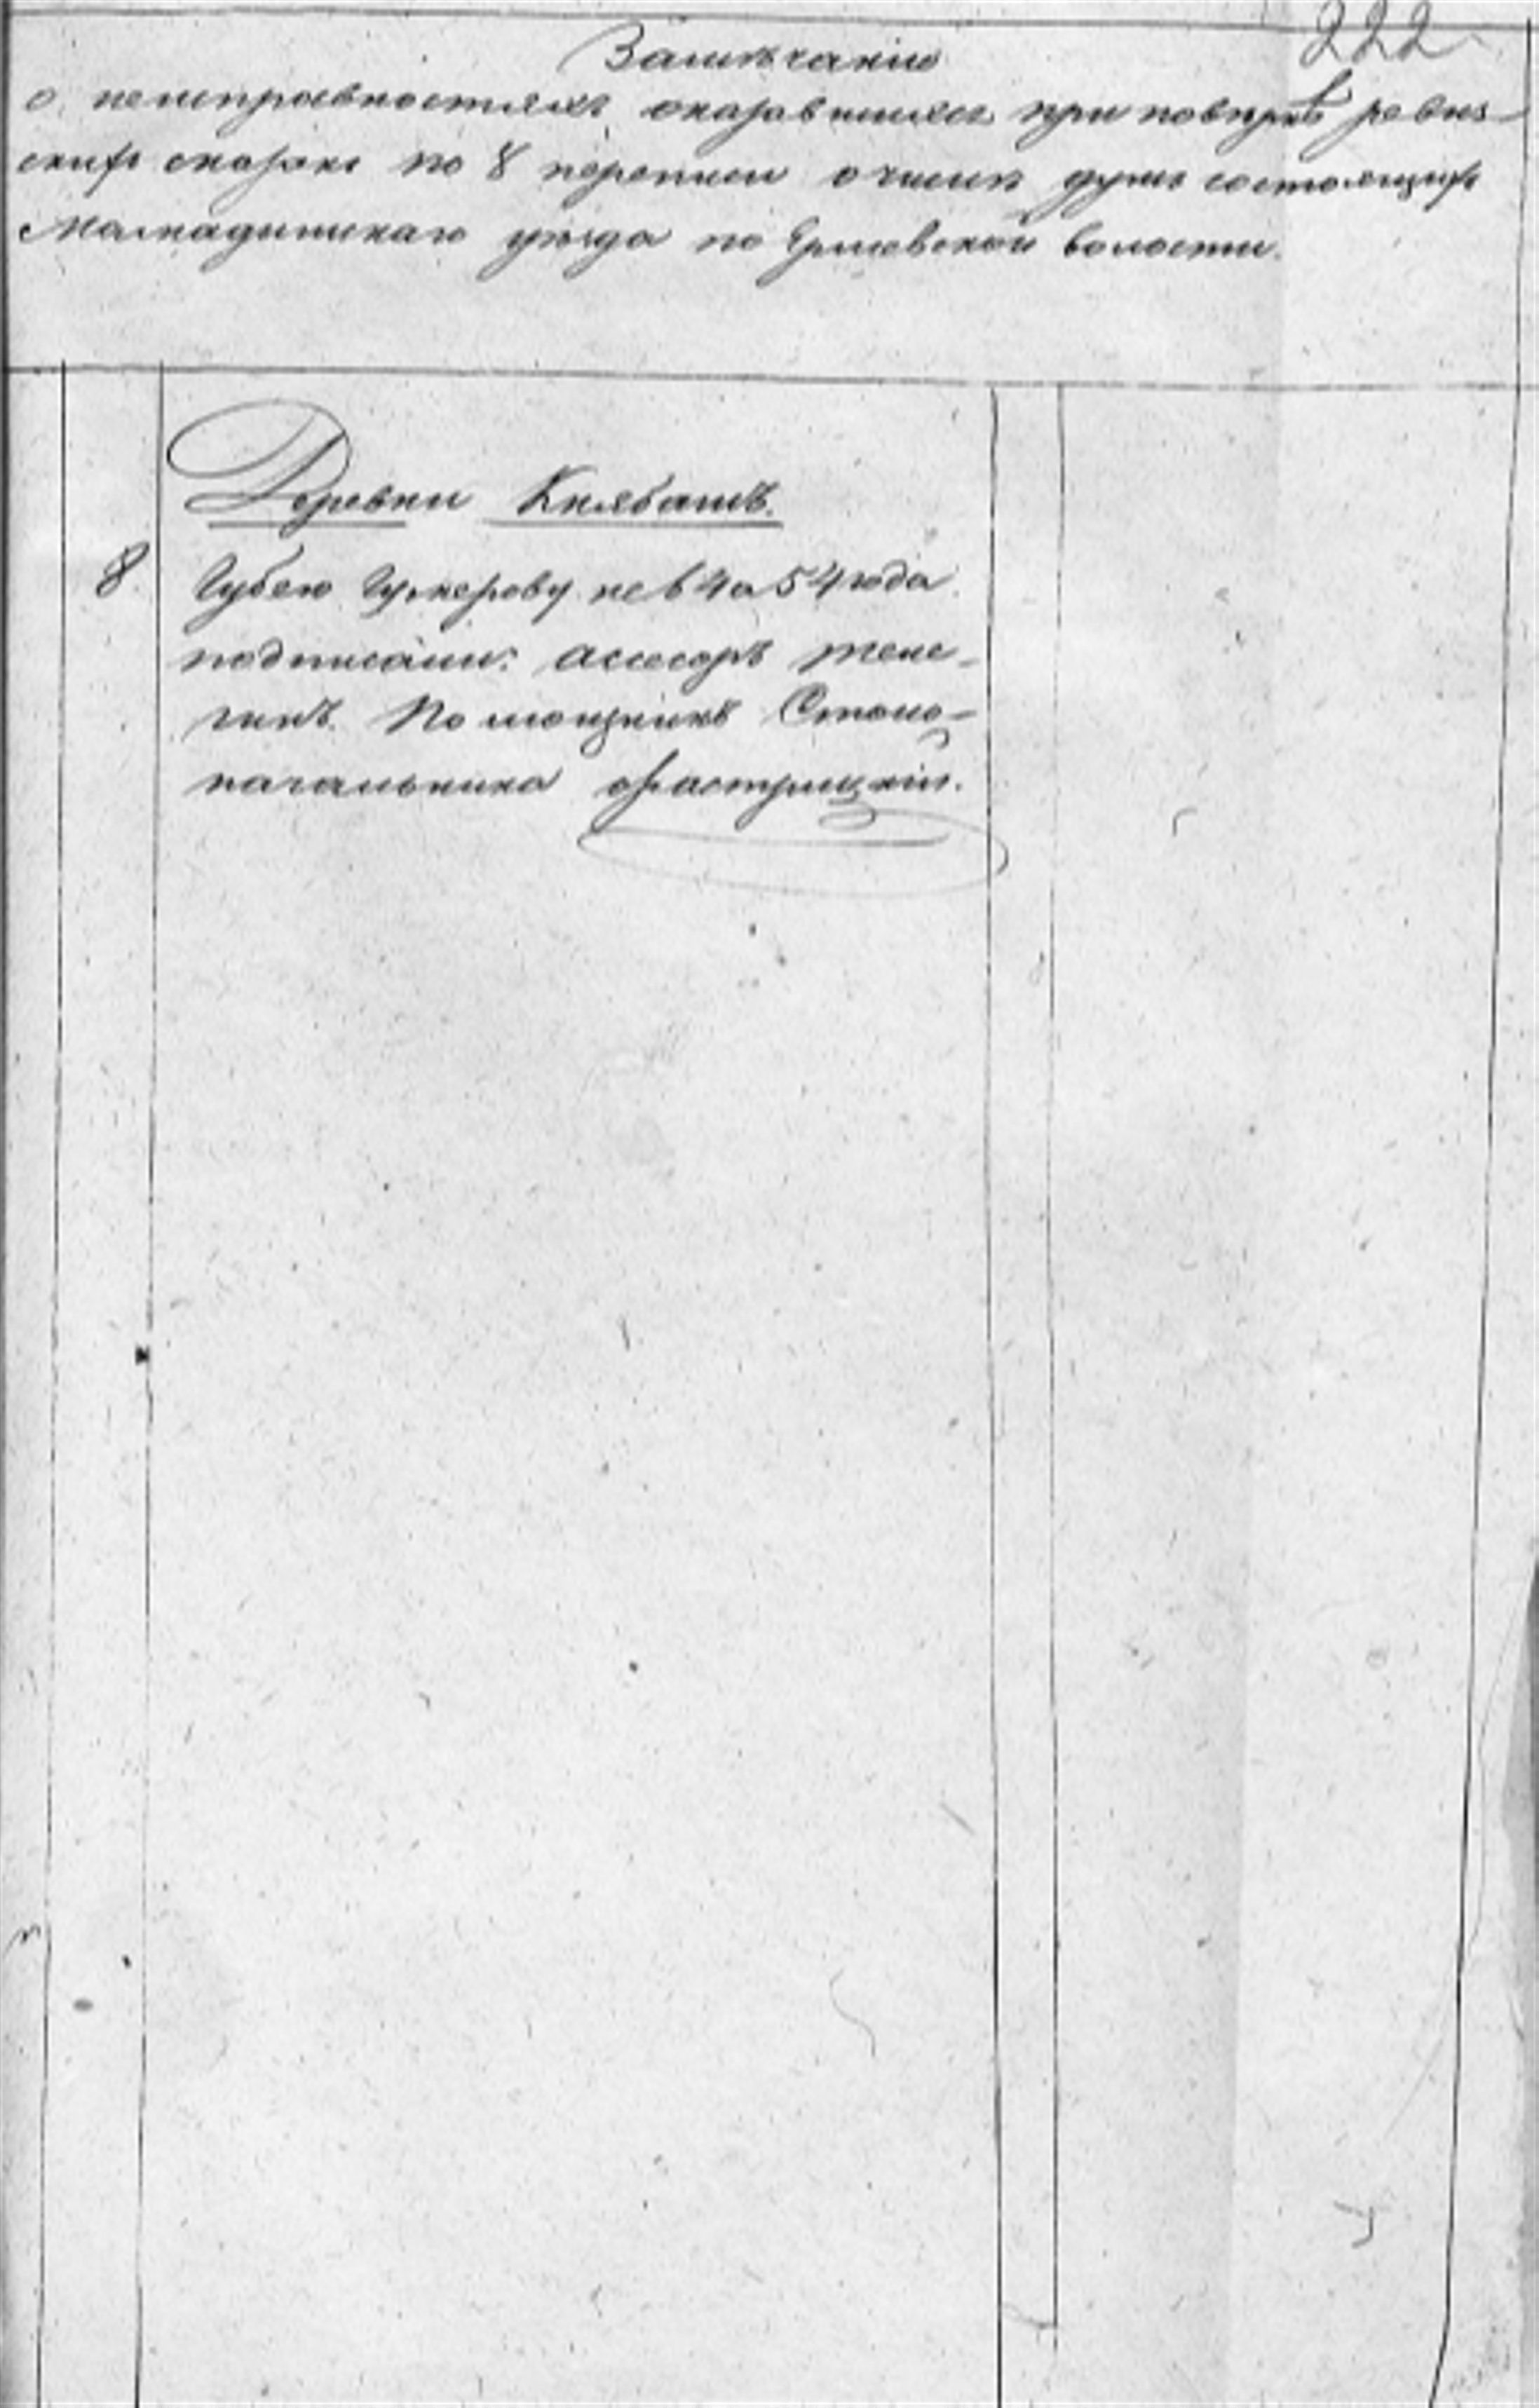 222
Замѣчаніе
о неисправностяхъ оказавшихся при повѣркѣ ревиз-
скихъ сказокъ по 8 переписи о числѣ душъ состоящихъ
Мамадышскаго уѣзда по Ерыевской волости.
Деревни Князбашъ.
8 Губею Гумерову не 64 а 54 года
подписали: ассесоръ Теле-
гинъ. Помощникъ Столо-
начальника